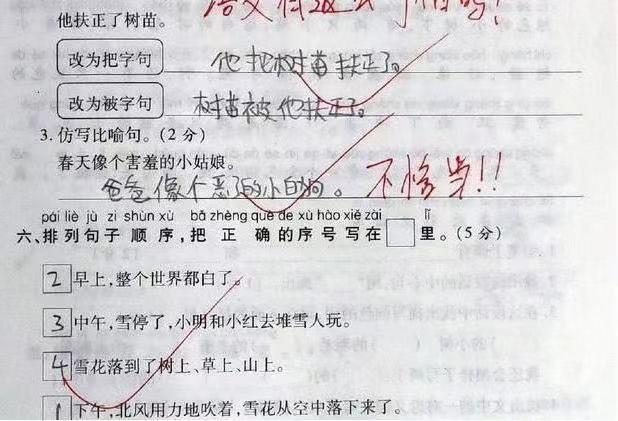 他扶正了树苗。
改为把字句 他把树苗扶正了。
改为被字句 树苗被他扶正了。
3.仿写比喻句。(2分)
春天像个害羞的小姑娘。
爸爸像个恶了的小白狗。 不恰当!!
pái liè jù zi shùn xù bǎ zhèng què de xù hào xiě zài lǐ
六、排列句子顺序,把正确的序号写在 里。(5分)
2 早上,整个世界都白了。
3 中午,雪停了,小明和小红去堆雪人玩。
4 雪花落到了树上、草上、山上。
1 下午,北风用力地吹着,雪花从空中落下来了。